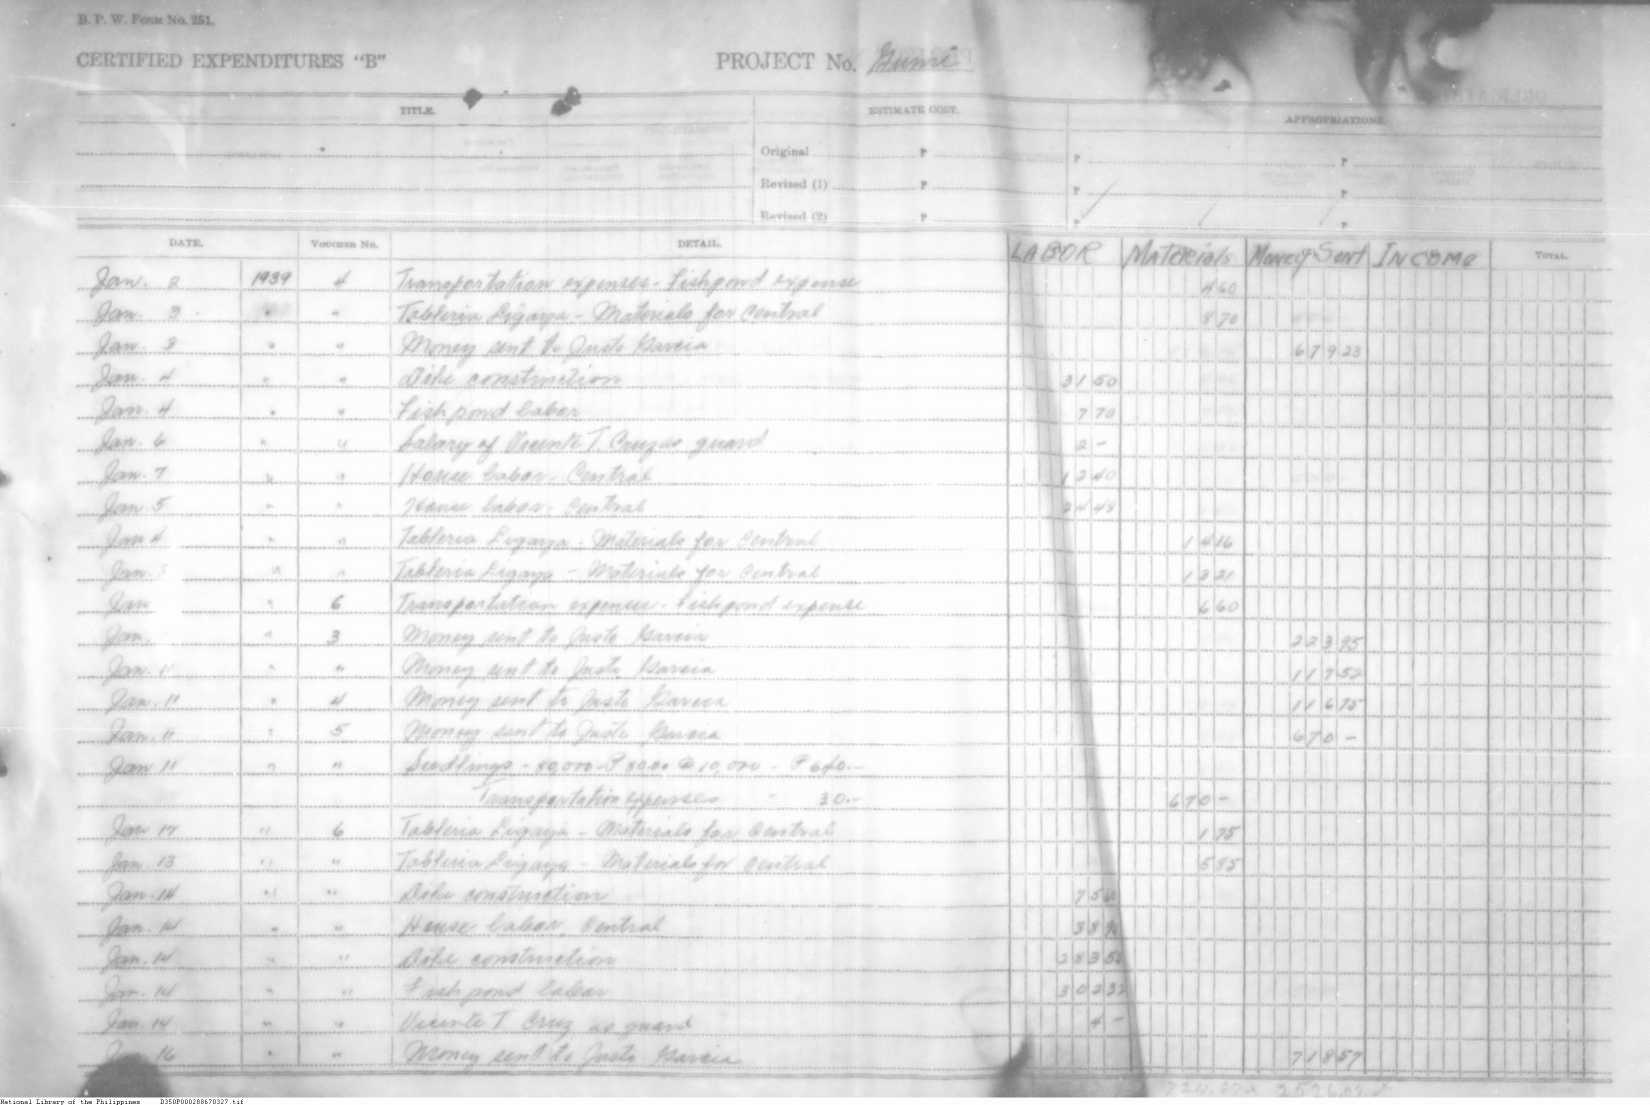 B. P. W. Form No. 251.
CERTIFIED EXPENDITURES "B" PROJECT No.
TITLE. ESTIMATE COST. APPROPRIATIONS.
Original ₱ ₱ ₱
Revised (1) ₱ ₱ ₱
Revised (2) ₱ ₱ ₱
DATE. Voucher No. DETAIL. LABOR Materials Money Sent INCOME Total.
Jan. 2 1939 4 Transportation expenses - Fishpond expense 4 60
Jan. 3 " " Tableria Ligaya - Materials for Central 8 70
Jan. 3 " " Money sent to Justo Garcia 679 23
Jan. 4 " " Dike construction 31 50
Jan. 4 " " Fish pond labor 7 70
Jan. 6 " " Salary of Vicente T. Cruz as guard 2 -
Jan. 7 " " House labor - Central 12 40
Jan. 5 " " House labor - Central 24 48
Jan 4 " " Tableria Ligaya - Materials for Central 14 16
Jan. " " Tableria Ligaya - Materials for Central 13 21
Jan " 6 Transportation expenses - Fishpond expense 6 60
Jan. " 3 Money sent to Justo Garcia 223 95
Jan. 11 " " Money sent to Justo Garcia 117 52
Jan. 11 " 4 Money sent to Justo Garcia 116 75
Jan. 11 " 5 Money sent to Justo Garcia 670 -
Jan 11 " " Seedlings - 80,000 - ₱ 80.00 @ 10,000 - ₱ 640.-
Transportation expenses - 30.- 670 -
Jan 12 " 6 Tableria Ligaya - Materials for Central 1 75
Jan. 13 " " Tableria Ligaya - Materials for Central 5 95
Jan. 14 " " Dike construction
Jan. 14 " " House labor, Central
Jan. 14 " " Dike construction
Jan. 14 " " Fish pond labor
Jan. 14 " " Vicente T Cruz as guard 4 -
16 " " Money sent to Justo Garcia 718 57
National Library of the Philippines D350P000288670327.tif